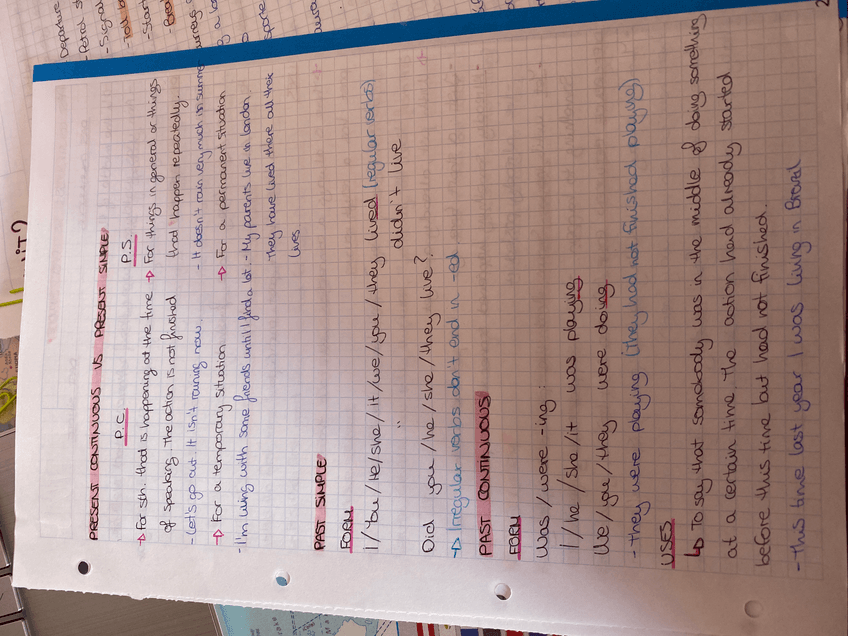 PRESENT CONTINUOUS VS PRESENT SIMPLE
P.C. P.S.
→ For sth. that is happening at the time → For things in general or things
of speaking. The action is not finished that happen repeatedly.
- Let's go out. It isn't raining now. - It doesn't rain very much in summer
→ For a temporary situation → For a permanent situation
- I'm living with some friends until I find a lot. - My parents live in london
they have lived there all their
lives
PAST SIMPLE
FORM
I/You/He/she/it/we/you/they lived (regular verbs)
" didn't live
Did you/he/she/they live?
→ Irregular verbs don't end in -ed
PAST CONTINUOUS
FORM
Was/were -ing:
I/he/she/it was playing
We/you/they were doing
- They were playing (they had not finished playing)
USES
↳ To say that somebody was in the middle of doing something
at a certain time. The action had already started
before this time but had not finished.
- This time last year I was living in Brazil
2
Departure
- Petrol s
- Signal
- Toll b
- Star